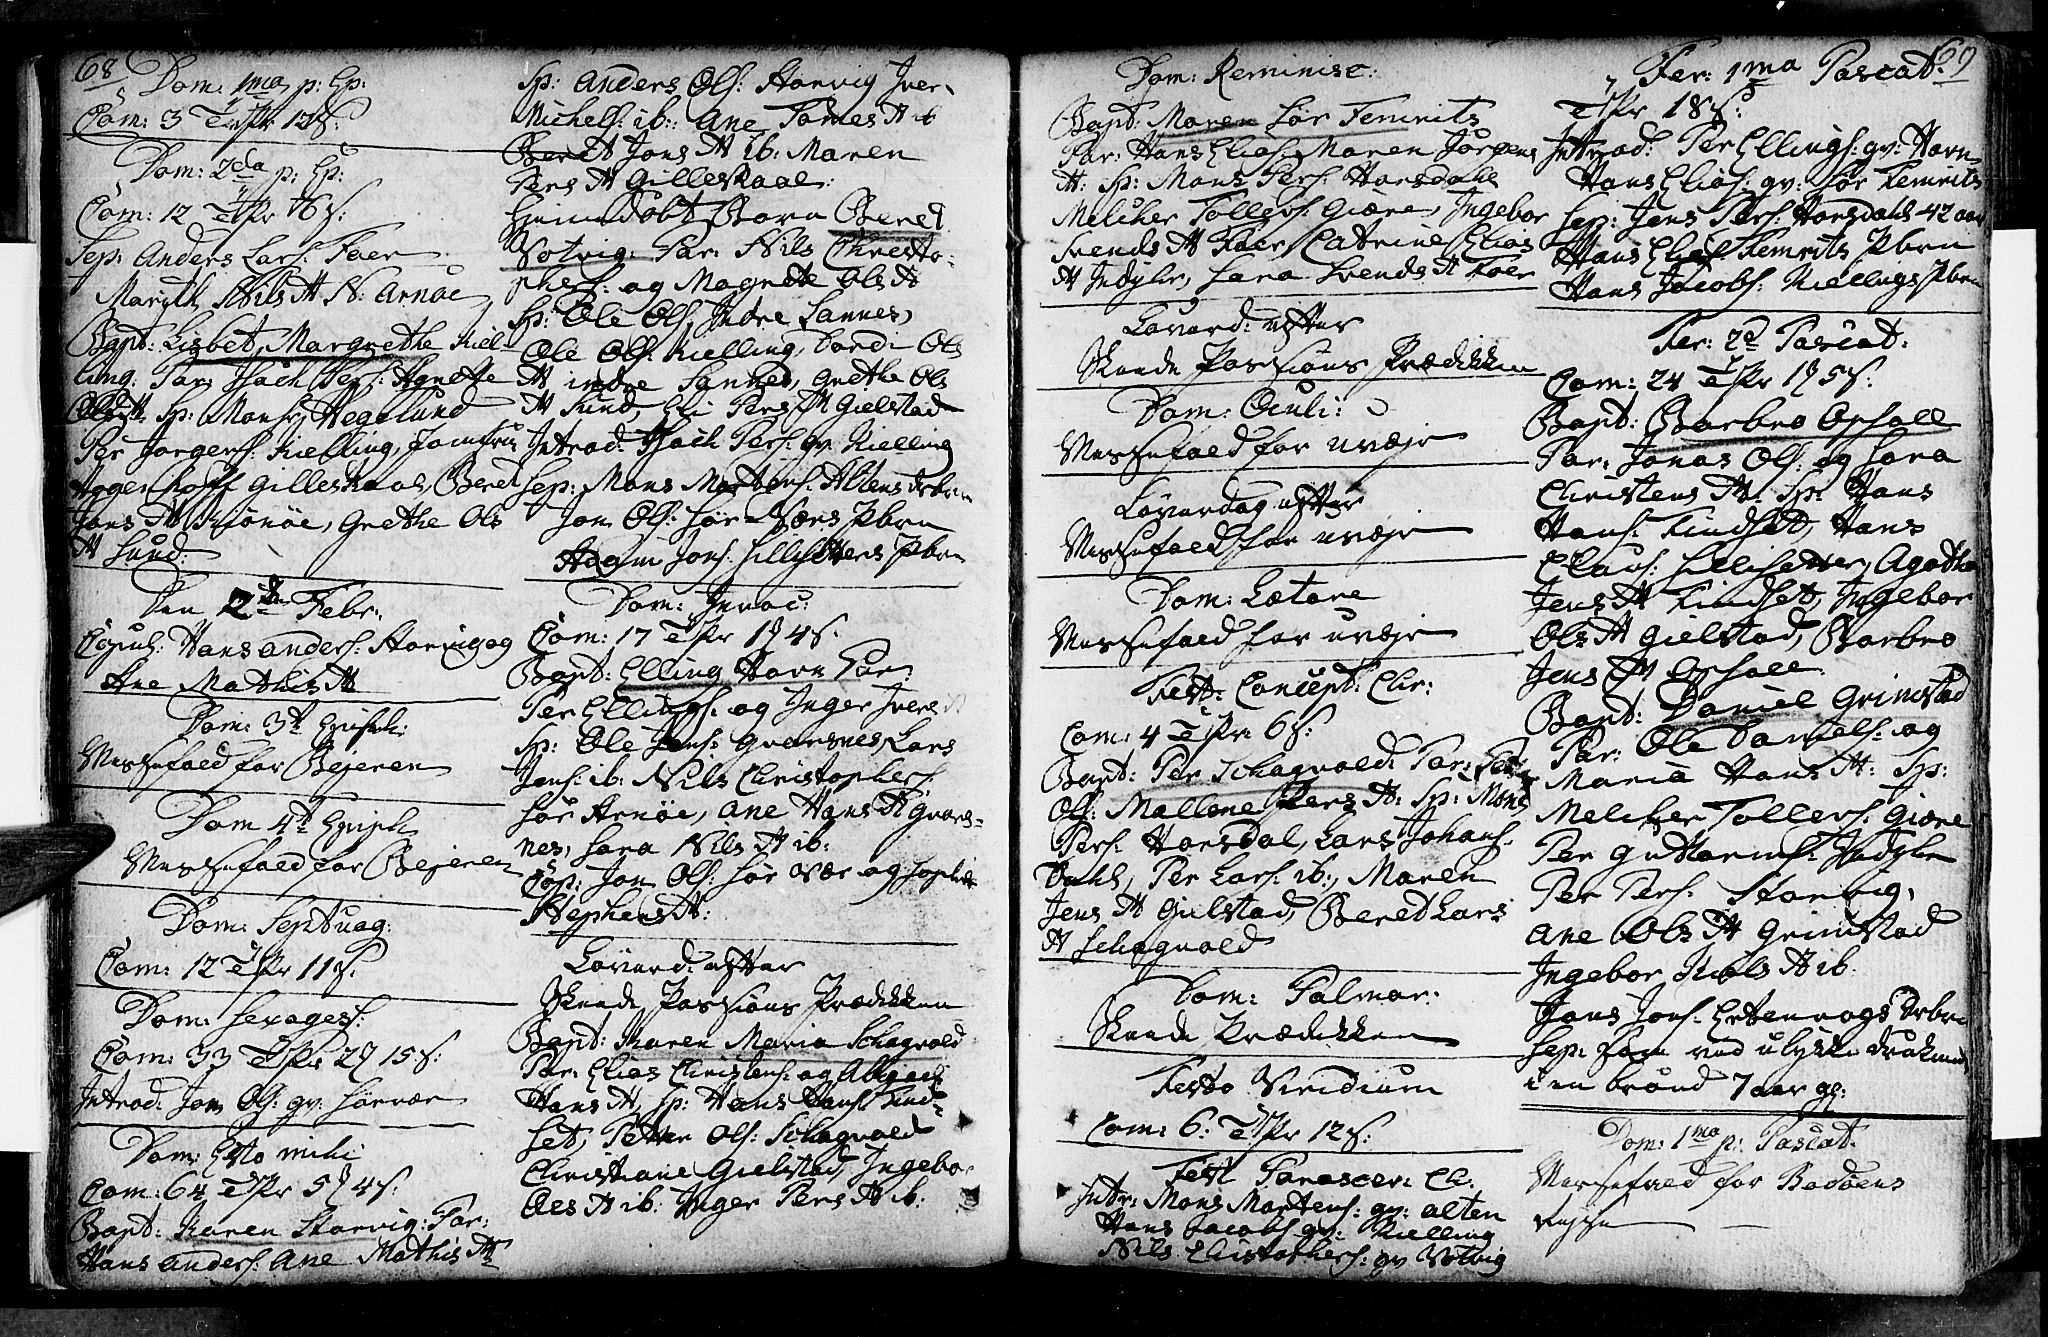 68
Dom: 1ma p: Ep:
Com: 3 Tpr 12 s:
Dom: 2da p: Ep:
Com: 12 Tpr 16 s:
Sep: Anders Lars: Foer
Margth Nils D N: Arnöe
Bapt: Lisbet Margrethe Kiel-
ling: Par: Isach Pers: Agnette
Ols D Sp: Mons Hegelund
Per Jörgens: Kielling, Jomfru
Gilleskaal, Beret
Jons D Grethe Ols
D Sund:
Den 2den Febr:
Copul: Hans Anders: Storvig og
Ane Mathis D
Dom: 3t Epiph:
Messefald for Bejeren
Dom 4t Epiph
Messefald for Bejeren
Dom: Septuag:
Com: 12 Tpr 11 s:
Dom: Sexages:
Com: 33 Tpr 2 15 s:
Introd: Jon Ols: gv: Sörvær
Dom: Esto mihi
Com: 64 Tpr 5 4 s:
Bapt: Karen Storvig: Par:
Hans Anders: Ane Mathis D
Sp: Anders Ols: Storvig Iver
Michels: ib: Ane Tomes D ib
Beret Jons D ib: Maren
Pers D Gilleskaal:
Hiemdöbt Barn Beret
Solvig: Par: Nils Christo-
phers: og Magrete Ols D
Sp: Ole Ols: Indre Sannes,
Ole Ols: Kielling, Dordi Ols
D indre Sannes, Grethe Ols
D Sund, Eli Pers D Gielstad
Introd: Isach Pers: gv: Kielling
Sep: Mons Mortens: Altens dbarn
Jon Ols: Sör-Værs Pbrn
Adam Jons: Sillesetters Pbrn
Dom: Invoc:
Com: 17 Tpr 1 4 s:
Bapt: Elling Havn Par:
Per Ellings: og Inger Ivers D
Sp: Ole Jens: Gvarsnes Lars
Jens: ib: Nils Christophers:
Sör Arnöe, Ane Hans D Gvars-
nes, Sara Nils D ib:
Cop: Jon Ols: Sör Vær og Sophia
Stephens D:
Löverd: efter
Skeede Passions Prædikken
Bapt: Karen Maria Schagvold
Par: Elias Christens: og Abigael
Hans D, Sp: Hans Hans: Kind-
set, Petter Ols: Schagvold
Christiane Gielstad, Ingebor
Oles D ib: Inger Pers D ib:
Dom: Reminisc:
Bapt: Maren Sör Femrits
Par: Hans Elias: Maren Jörgens
D: Sp: Mons Pers: Horsdahl
Melcher Tollers: Giære, Ingebor
Svends D Foer, Catrine Elias
D Indyhr, Sara Svends D Foer
Löverd: efter
Skeede Passions Prædikken
Dom: Oculi:
Messefald for uvejr
Löverdag efter
Messefald for uvejr
Dom: Lætare
Messefald for uvejr
Fest: Concept: Chr:
Com: 4 Tpr 6 s:
Bapt: Per Schagvold: Par:
Ols: Mallene Pers D: Sp: Mons
Pers: Horsdal, Lars Johans:
Dahl, Per Lars: ib:, Maren
Jens D Gielstad, Beret Lars
D Schagvold
Dom: Palmar:
Skeede Prædikken
Festo Viridium
Com: 6: Tpr 12 s:
Fest Parascev: Ch:
Intr: Mons Mortens: gv: Alten
Hans Jacobs: gv: Kielling
Nils Christophers: gv Solvig
69
Fer: 1ma Pascat:
Tpr 18 s:
Introd: Per Ellings: gv: Havn
Hans Elias: gv: Sör Femrits
Sep: Jens Pers: Horsdahl 42 aar
Hans Elias: Femrits Pbrn
Hans Jacobs: Kiellings Pbrn
Fer: 2d Pascat:
Com: 24 Tpr 1 5 s:
Bapt: Barbro Opsall
Par: Jonas Ols: og Sara
Christens D: Sp: Hans
Hans: Kindset, Hans
Clavs: Sillesetter, Agathe
Jens D Kindset, Ingebor
Ols D Gielstad, Barbro
Jens D Opsall
Bapt: Daniel Grimstad
Par: Ole Daniels: og
Maria Hans D: Sp:
Melcher Tollers: Giære
Per Guttorms: Indyhr
Per Pers: Storvig,
Ane Ols D Grimstad
Ingebor Niels D ib.
Jons Jons: Ertenvogs Dbrn
Sep: som ved ulykke druknede
i en brönd 7 aar gl:
Dom: 1ma p: Pascat:
Messefald for Bodöens